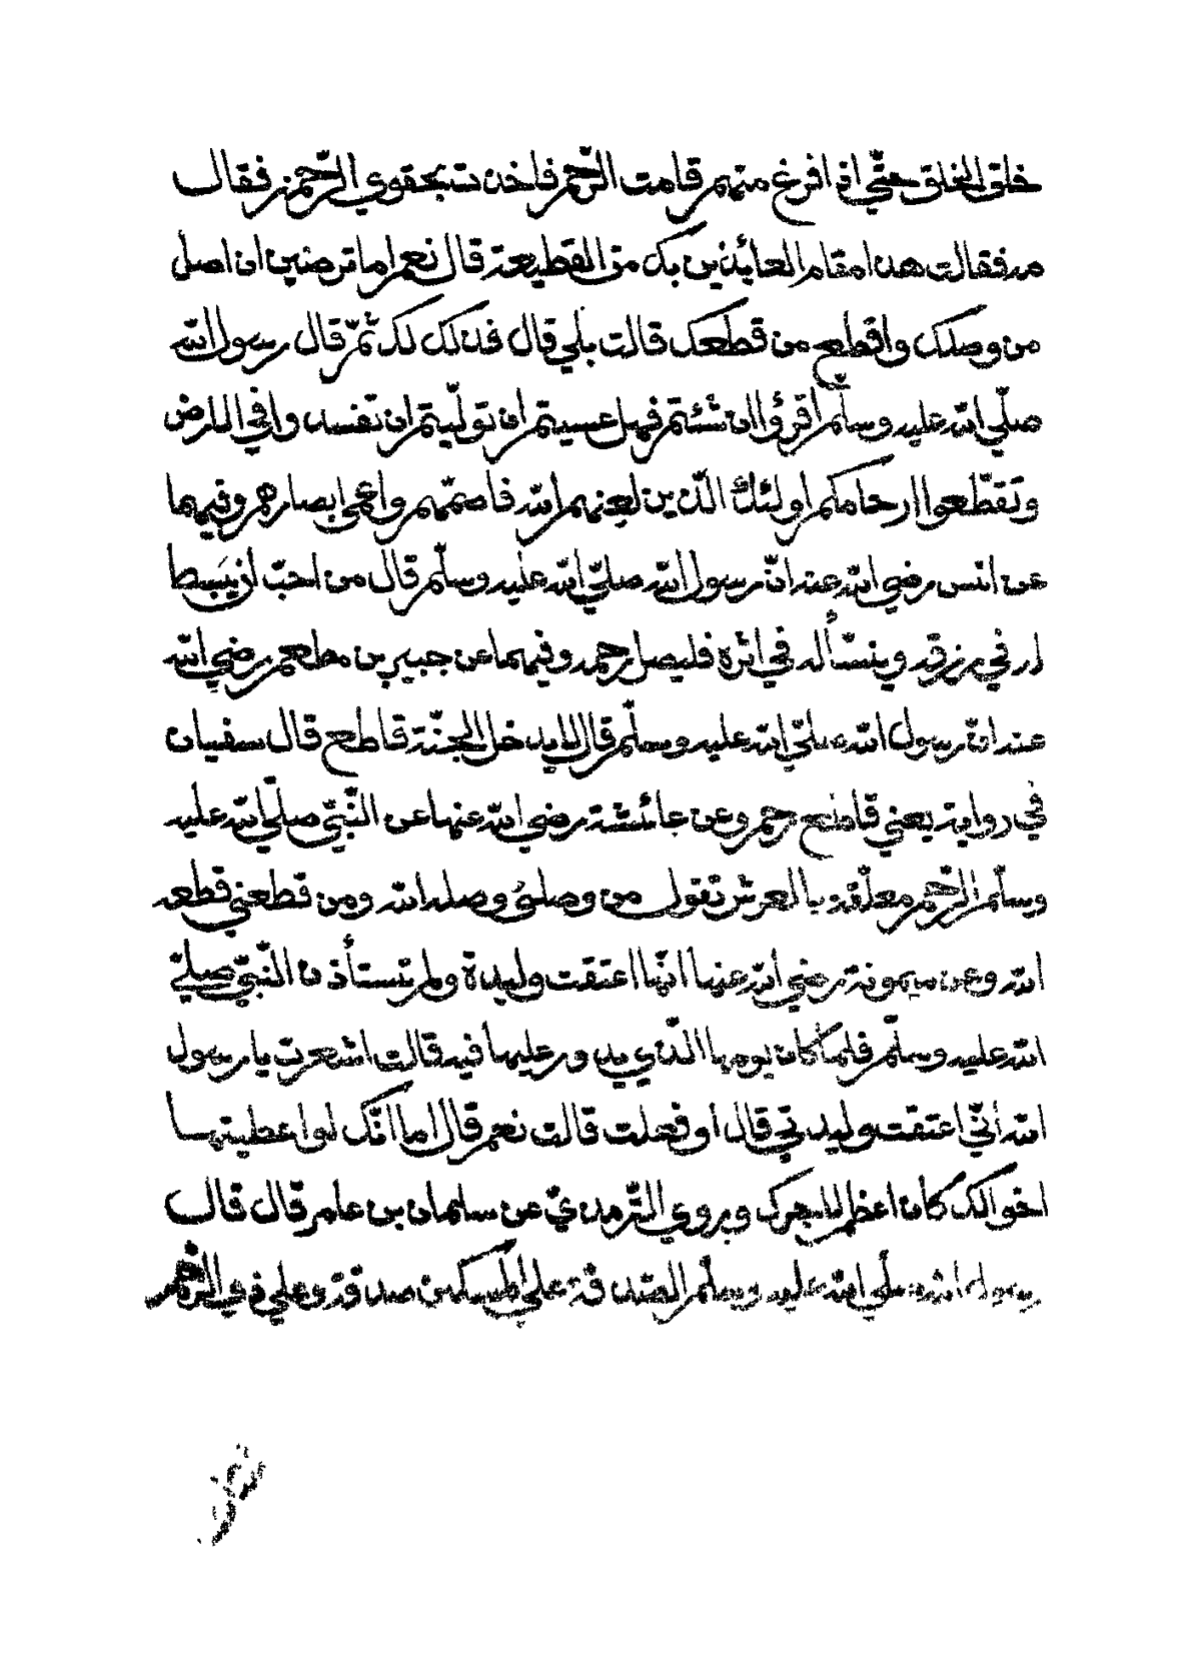 خلق الخلق حتّي اذا فرغ منهم قامت الرّحم فاخذت بحقوي الرّحمن فقال
مه فقالت هذا مقام العائذين بك من القطيعة قال نعم اما ترضين ان اصل
من وصلك واقطع من قطعك قالت بلي قال فذلك لك ثمّ قال رسول الله
صلّي الله عليه وسلّم اقرؤا ان شئتم فهل عسيتم ان تولّيتم ان تفسدوا في الارض
وتقطّعوا ارحامكم اولئك الّذين لعنهم الله فاصمّهم واعمي ابصارهم وفيهما
عن انس رضي الله عنه انّ رسول الله صلّي الله عليه وسلّم قال من احبّ ان يبسط
له في رزقه وينسّأ له في اثره فليصل رحمه وفيهما عن جبير بن مطعم رضي الله
عنه انّ رسول الله صلّي الله عليه وسلّم قال لا يدخل الجنّة قاطع قال سفيان
في رواية يعني قاطع رحم وعن عائشة رضي الله عنها عن النّبيّ صلّي الله عليه
وسلّم الرّحم معلّقة بالعرش تقول من وصلني وصله الله ومن قطعني قطعه
الله وعن ميمونة رضي الله عنها انّها اعتقت وليدة ولم تستأذن النّبيّ صلّي
الله عليه وسلّم فلمّا كان يومها الّذي يدور عليها فيه قالت اشعرت يا رسول
الله انّي اعتقت وليدتي قال أو فعلت قالت نعم قال اما انّك لو اعطيتها
اخوالك كان اعظم لاجرك وروي التّرمذيّ عن سليمان بن عامر قال قال
رسول الله صلّي الله عليه وسلّم الصّدقة علي المسكين صدقة وعلي ذي الرّحم